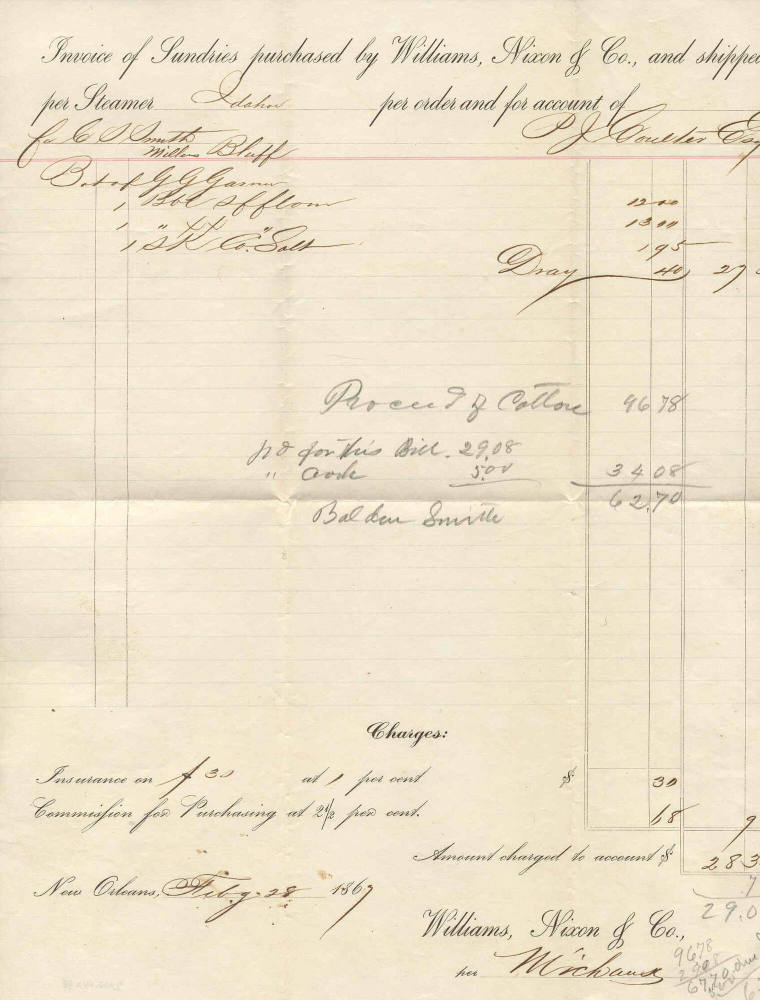 Invoice of Sundries purchased by Williams, Nixon & Co., and shipped
per Steamer Idaho per order and for account of
P J Coulter Esq
for C S Smith
Millers Bluff
Bot of G G Garner
1 Bbl Sf flour 12 00
1 " XX " 13 00
1 Sk Co. Salt 1 95
Dray 40 27
Proceed of Cotton 96 78
pd for this Bill. 29.08
" " 5.00 34 08
62.70
Bal due Smith
Charges:
Insurance on $ 30 at 1 per cent $ 30
Commission for Purchasing at 2 1/2 per cent. 68 9
Amount charged to account $ 28 3
7
New Orleans, Feby 28 1867
29.0
Williams, Nixon & Co.,
per Michaux
9678
2908
6770 due